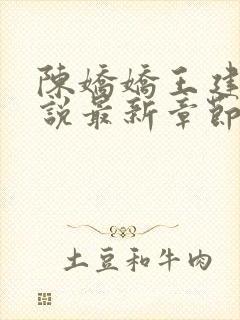 陳嬌嬌王建
說最新章節
土豆和牛肉